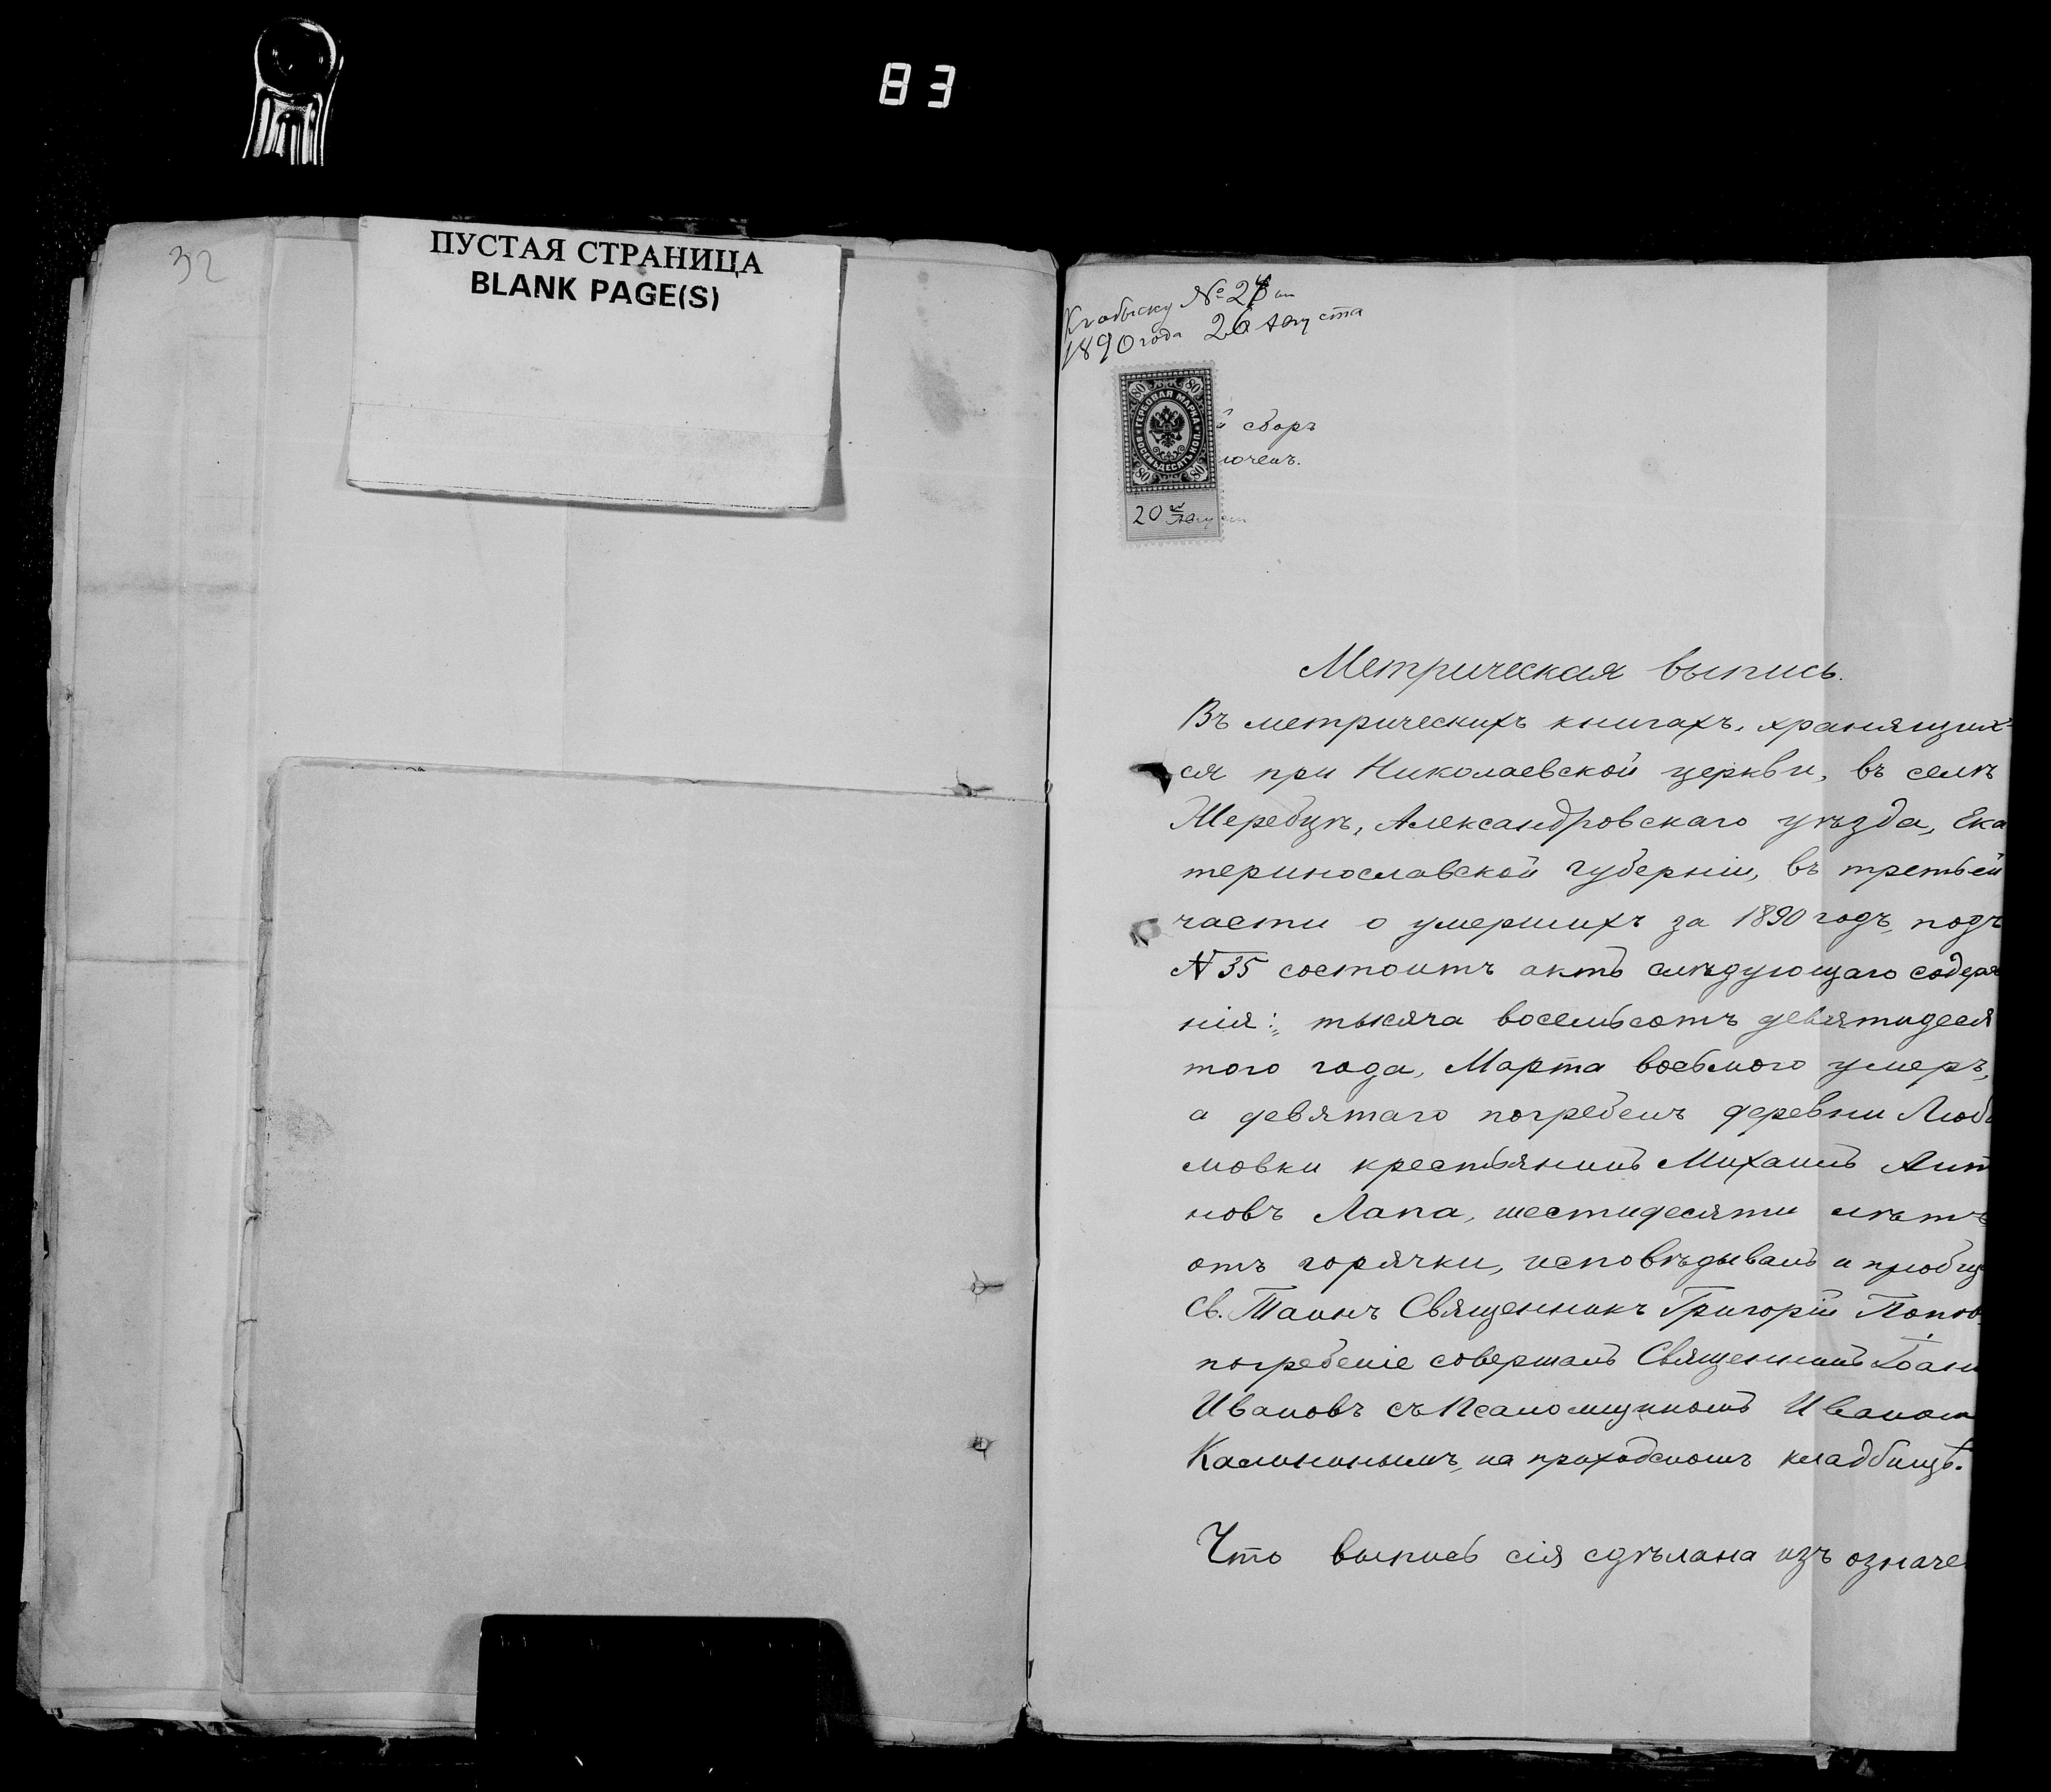 83
32
ПУСТАЯ СТРАНИЦА
BLANK PAGE(S)
№ 24
1890 года 26 Августа
80 80
ГЕРБОВАЯ МАРКА
ВОСЕМЬДЕСЯТЪ КОП.
80 80
й сборъ
юченъ.
20 Август
Метрическая выпись.
Въ метрическихъ книгахъ, хранящих-
ся при Николаевской церкви, въ селѣ
Жеребцѣ, Александровскаго уѣзда, Ека
теринославской губерніи, въ третьей
части о умершихъ за 1890 годъ, подъ
№ 35 состоитъ актъ слѣдующаго содерж
нія: тысяча восемьсотъ девятидеся
того года, Марта восьмого умеръ,
а девятаго погребенъ деревни Люби
мовки крестьянинъ Михаилъ Ант
новъ Лапа, шестидесяти лѣтъ
отъ горячки, исповѣдывалъ и пріобщ
Св. Таинъ Священникъ Григорій Попов
погребеніе совершалъ Священникъ Іоанн
Ивановъ съ Псаломщикомъ Иваном
Калининымъ, на приходскомъ кладбищѣ.
Что выпись сія сдѣлана изъ означе